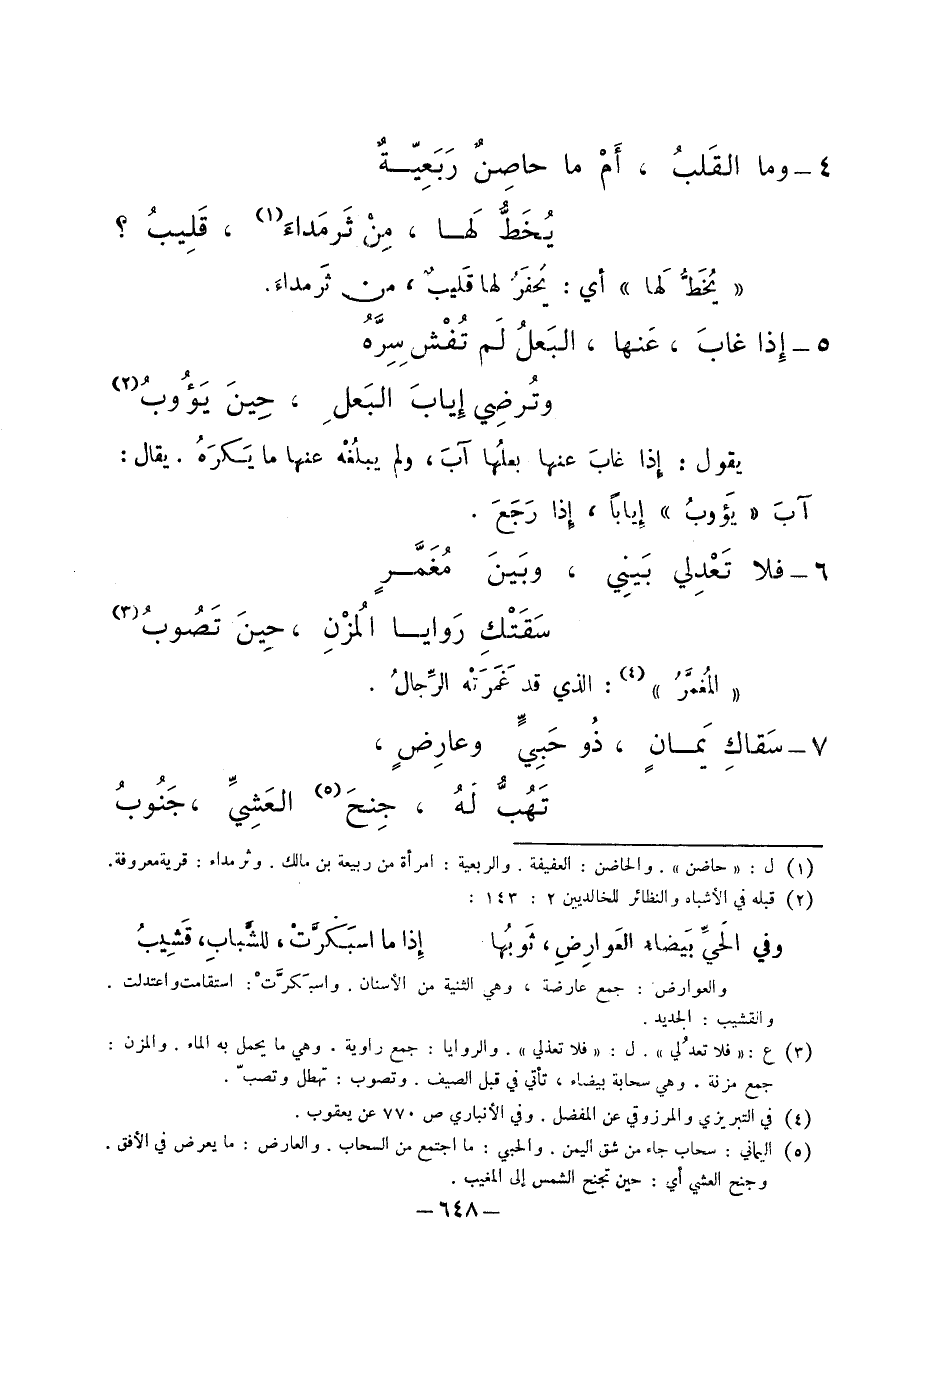 ٤ – وما القَلبُ ، أَمْ ما حاصِنٌ رَبَعِيّـــةٌ
يُخَطُّ لَهـــا ، مِنْ ثَرمَداءَ(١) ، قَلِيبُ ؟
« يُخَطُّ لَها » أي : يُحفَرُ لها قليبٌ ، من ثَرمداءَ.
٥ – إِذا غابَ ، عَنها ، البَعلُ لَم تُفْشِ سِرَّهُ
وتُرضِي إِيابَ البَعلِ ، حِينَ يَؤُوبُ(٢)
يقول : إِذا غابَ عنها بعلُها آبَ ، ولم يبلُغْه عنها ما يَكرَهُ . يقال :
آبَ « يَؤوبُ » إِياباً ، إِذا رَجَعَ .
٦ – فلا تَعْدِلي بَينِي ، وبَينَ مُغَمَّـــرٍ
سَقَتْكِ رَوايـــا المُزْنِ ، حِينَ تَصُوبُ(٣)
« المُغمَّرُ »(٤) : الذي قد غَمَرَتْه الرِّجالُ .
٧ – سَقاكِ يَمـــانٍ ، ذُو حَبِيٍّ وعارِضٍ ،
تَهُبُّ لَهُ ، جِنحَ(٥) العَشِيِّ ، جَنُوبُ
(١) ل : « حاضن » . والحاضن : العفيفة . والربعية : امرأة من ربيعة بن مالك . وثرمداء : قرية معروفة.
(٢) قبله في الأشباه والنظائر للخالديين ٢ : ١٤٣ :
وفي الحَيِّ بَيضاء العَوارِضِ ، ثَوبُها إِذا ما اسبَكرَّتْ ، للشَّبابِ، قَشيبُ
والعوارض : جمع عارضة ، وهي الثنية من الأسنان . واسبَكرَّتْ : استقامت واعتدلت .
والقشيب : الجديد .
(٣) ع : « فلا تعدُلي » . ل : « فلا تعذلي » . والروايا : جمع راوية . وهي ما يحمل به الماء . والمزن :
جمع مزنة . وهي سحابة بيضاء ، تأتي في قبل الصيف . وتصوب : تهطل وتصبّ .
(٤) في التبريزي والمرزوقي عن المفضل . وفي الأنباري ص ٧٧٠ عن يعقوب .
(٥) اليماني : سحاب جاء من شق اليمن . والحبي : ما اجتمع من السحاب . والعارض : ما يعرض في الأفق .
وجنح العشي أي : حين تجنح الشمس إلى المغيب .
– ٦٤٨ –